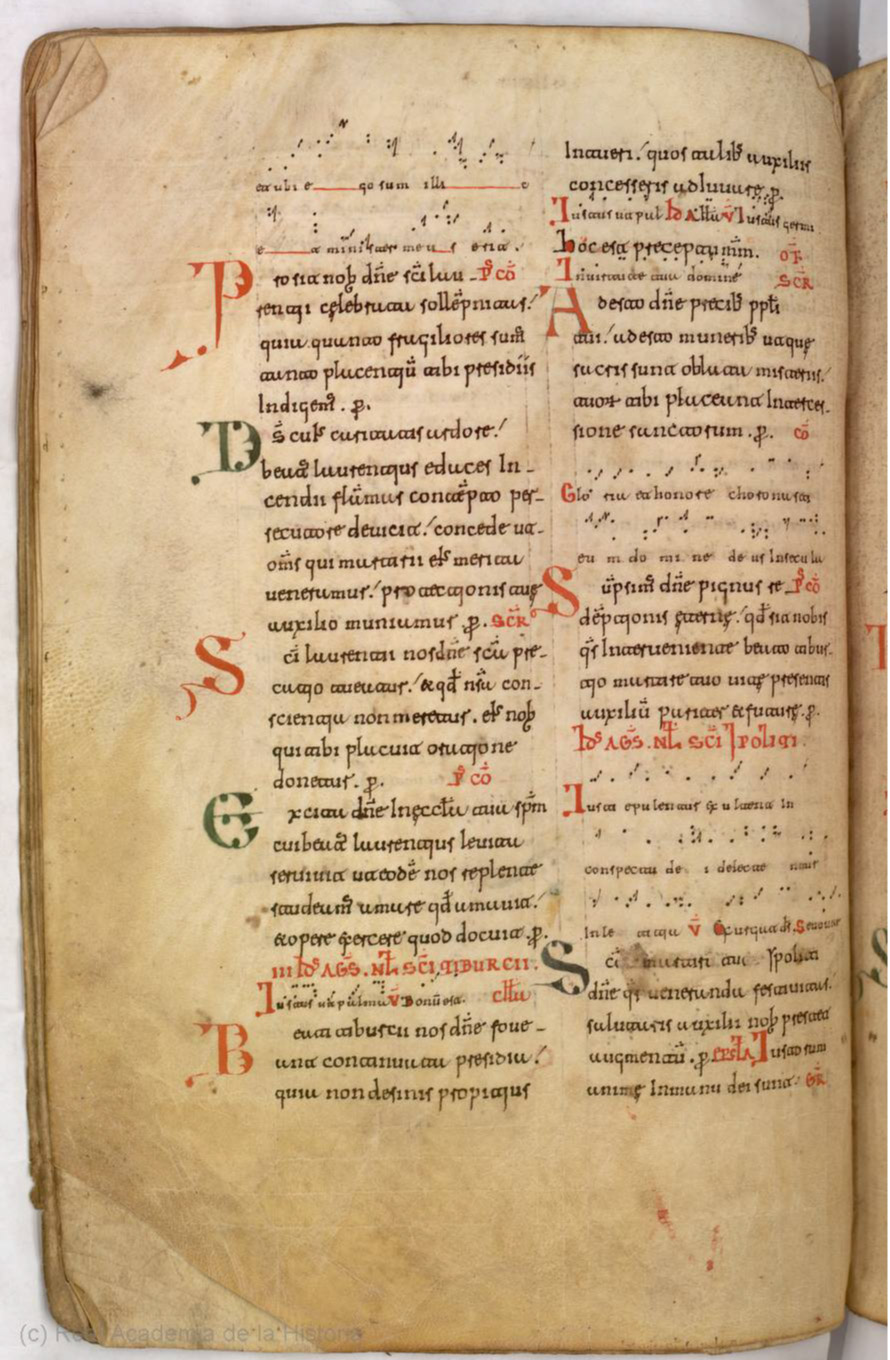 et ubi e go sum illi c
e t minister meus erit.
Prosit nob dñe sci lau Pꝰ cō
renti celebrata sollēpnitas.
quia quanto fragiliores sum
tanto placentiū tibi presidiis
Indigem. p.
Ds̄ cuiꝰ caritatis ardore.
beatꝰ laurentius edaces In-
cendii flāmas contēpto per-
secutore devicit. concede ut
om̄s qui martirii eiꝰ merita
veneramur. protectionis tuę
auxilio muniamur p. SCR
Sc̄i laurenti nos dn̄e scā pre-
catio tueatur. & qđ nr̄a con-
scientia non meretur. eiꝰ nob
qui tibi placuit oratione
donetur. p. Pꝰ cō
Excita dn̄e In ęccl̄a tua sp̄m
cui beatꝰ laurentius levita
servivit ut eodē nos replente
studeamꝰ amare qđ amavit.
& opere exercere quod docuit. p.
III IdS AGS. NL SCI TIBURCII.
Iustus ut palma V Bonū est.
Beati tiburcii nos dn̄e fove-
ant continuata presidia.
quia non desinis propitius
Intueri. quos talibꝰ auxiliis
concesseris adiuvare. p.
Iustus ut pal V Iustus germi
Hoc est preceptum m̄m. OF
In virtute tua domine SCR
Adesto dn̄e precibꝰ ppl̄i
tui. adesto muneribꝰ utque
sacris sunt oblata misteriis.
tuorꝰ tibi placeant Interces-
sione sanctorum. p. cō
Glo ria et honore choronasti
eu m do mi ne de us In secula
Sūpsimꝰ dn̄e pignus re Pꝰ cō
dēptionis ęternę. qđ sit nobis
qs̄ Interveniente beato tibur-
tio martire tuo vitę presentis
auxiliū pariter & futurę. p.
IdS AGS. NL SCI Ipoliti.
Iusti epulentur & exultent In
conspectu de i delecte ntur
In le titia V Exurgat ds
Sci martiri tui Ipoliti
dn̄e qs veneranda festivitas.
salutaris auxilii nob prestet
augmentū. p. EPSTLA Iustorum
animę In manu dei sunt. GR
(c) Real Academia de la Historia